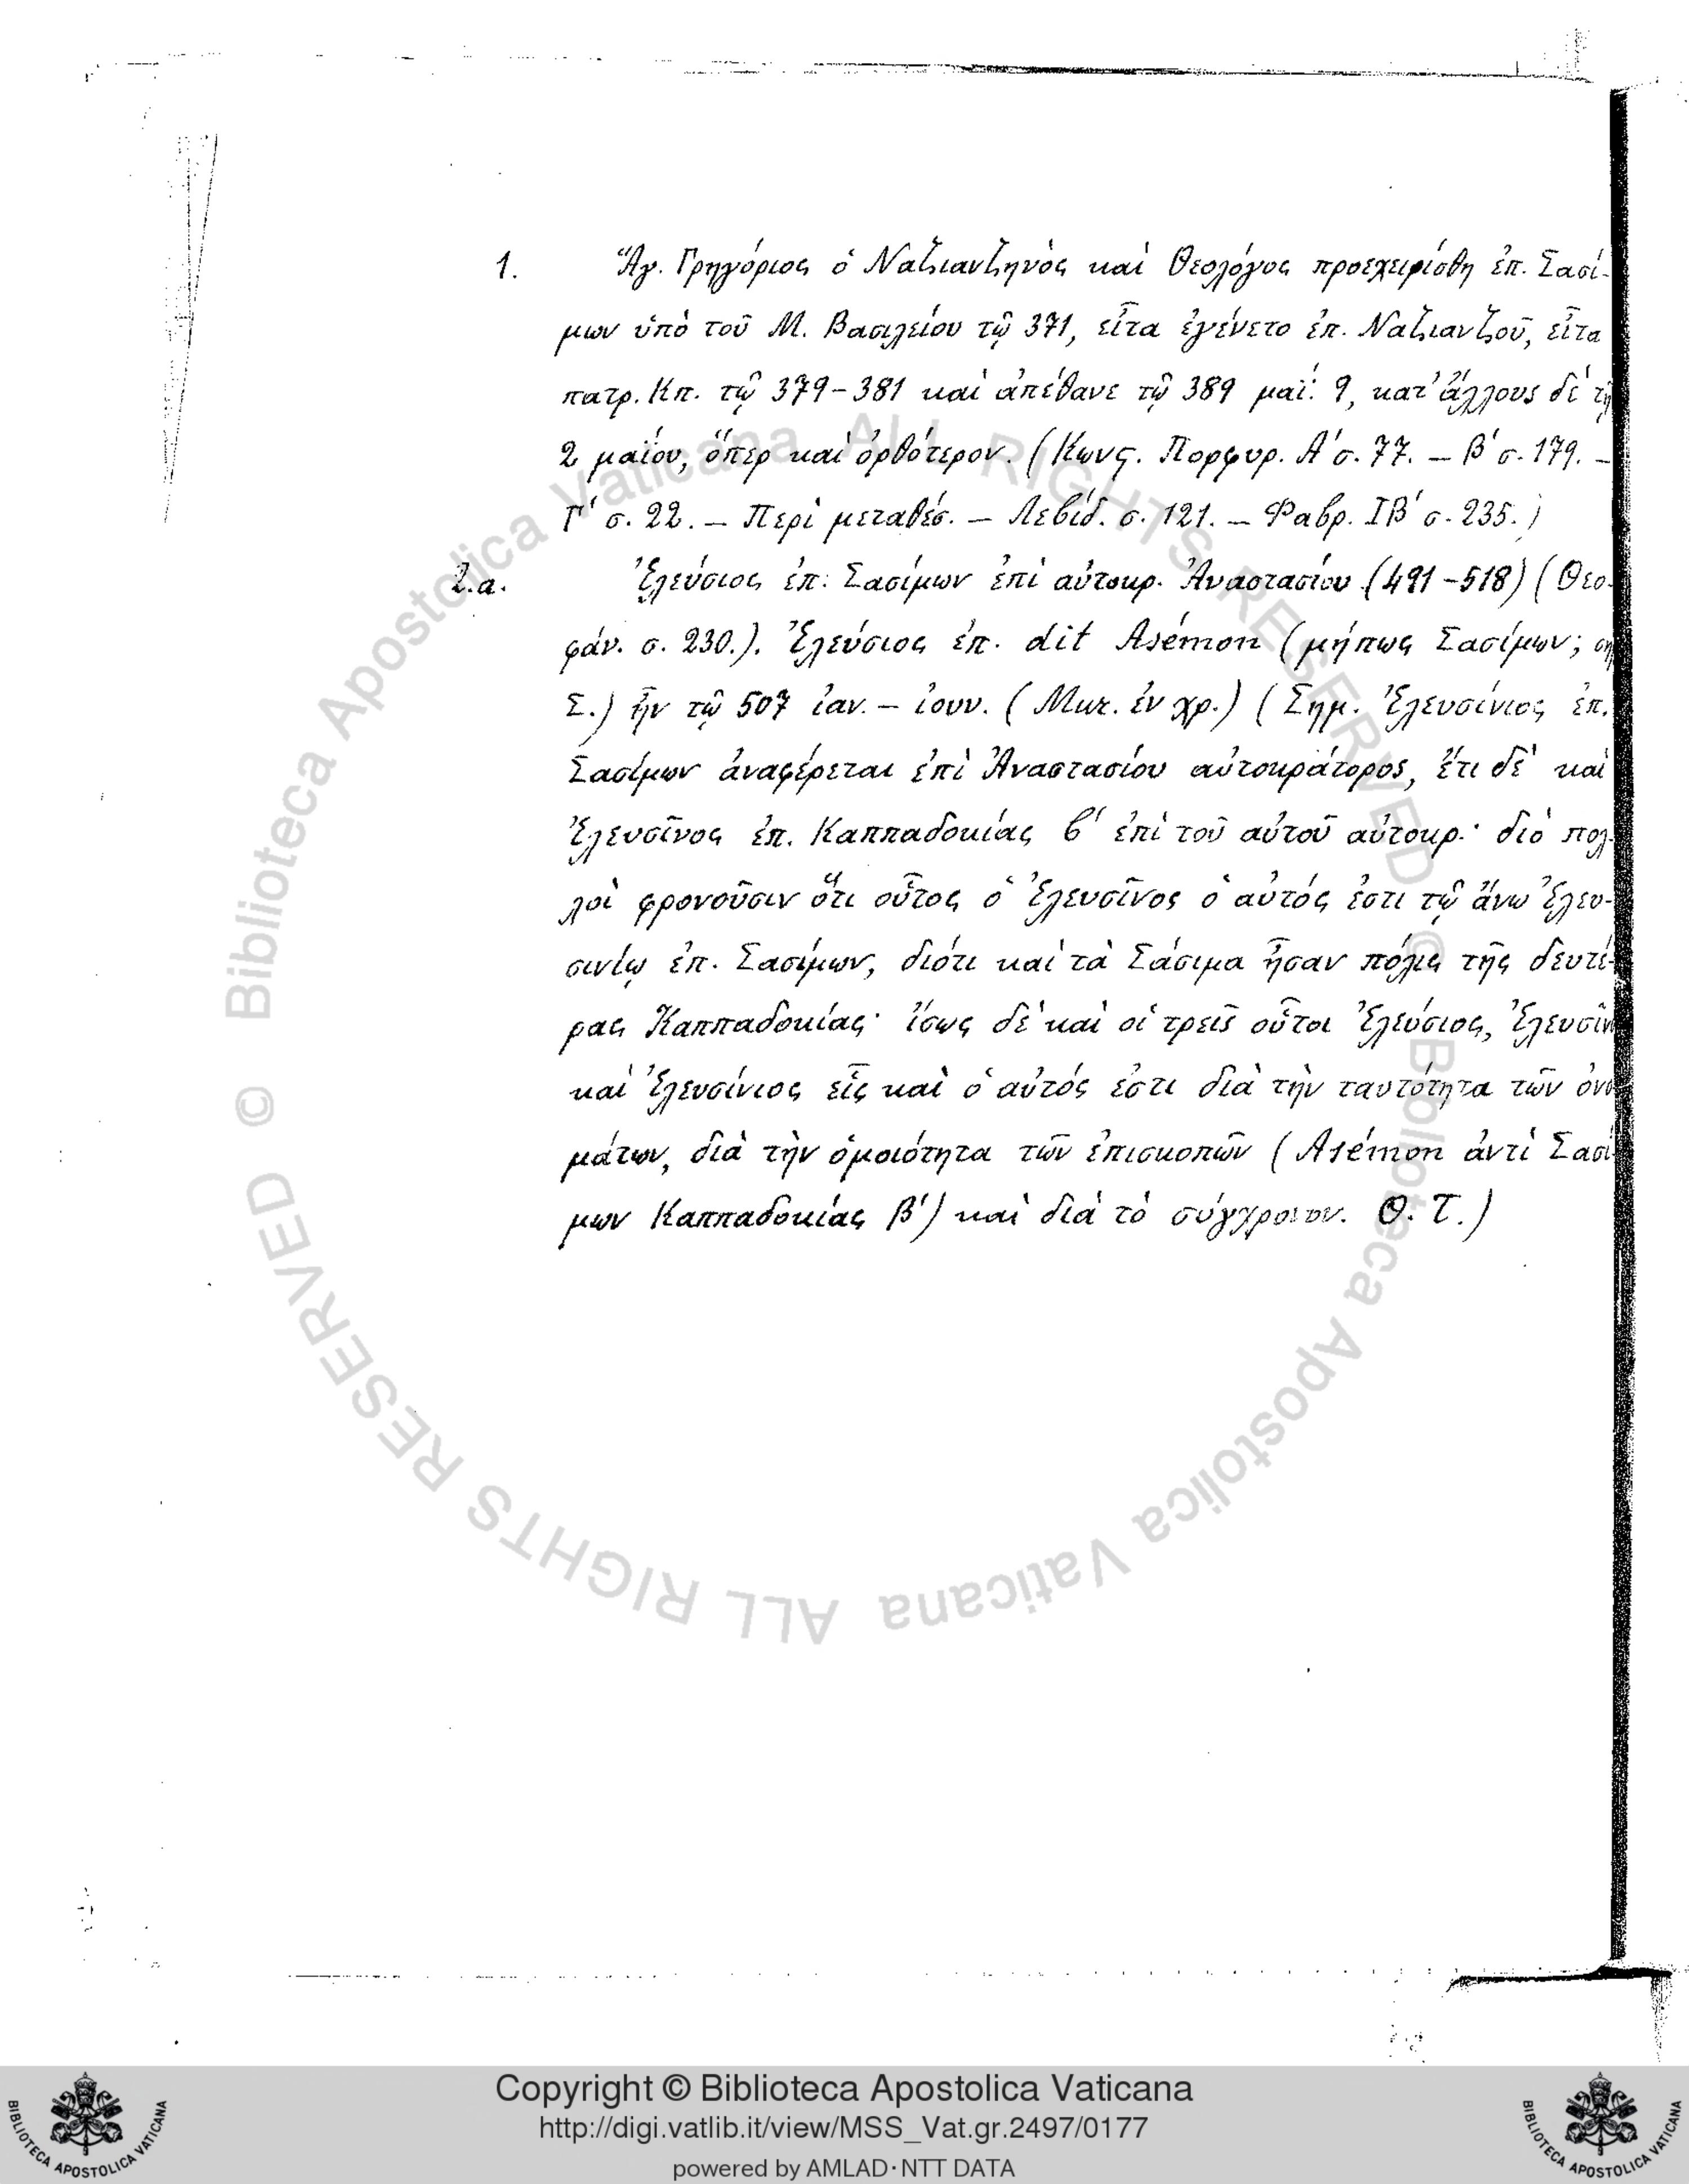 1. Ἅγ. Γρηγόριος ὁ Ναζιανζηνὸς καὶ Θεολόγος προεχειρίσθη ἐπ. Σασί-
μων ὑπὸ τοῦ Μ. Βασιλείου τῷ 371, εἶτα ἐγένετο ἐπ. Ναζιανζοῦ, εἶτα
πατρ. Κπ. τῷ 379-381 καὶ ἀπέθανε τῷ 389 μαΐ. 9, κατ' ἄλλους δὲ τῇ
2 μαΐου, ὅπερ καὶ ὀρθότερον. (Κωνς. Πορφυρ. Α΄ σ. 77. – Β΄ σ. 179. –
Γ΄ σ. 22. – Περὶ μεταθέσ. – Λεβίδ. σ. 121. – Φαβρ. ΙΒ΄ σ. 235.)
2.α. Ἐλεύσιος ἐπ. Σασίμων ἐπὶ αὐτοκρ. Ἀναστασίου (491-518) (Θεο-
φάν. σ. 230.). Ἐλεύσιος ἐπ. dit Asémon (μήπως Σασίμων; ση
Σ.) ἦν τῷ 507 ἰαν. – ἰουν. (Μικ. ἐν χρ.) (Σημ. Ἐλευσίνιος ἐπ.
Σασίμων ἀναφέρεται ἐπὶ Ἀναστασίου αὐτοκράτορος, ἔτι δὲ καὶ
Ἐλευσῖνος ἐπ. Καππαδοκίας β΄ ἐπὶ τοῦ αὐτοῦ αὐτοκρ.· διὸ πολ-
λοὶ φρονοῦσιν ὅτι οὗτος ὁ Ἐλευσῖνος ὁ αὐτός ἐστι τῷ ἄνω Ἐλευ-
σινίῳ ἐπ. Σασίμων, διότι καὶ τὰ Σάσιμα ἦσαν πόλις τῆς δευτέ-
ρας Καππαδοκίας· ἴσως δὲ καὶ οἱ τρεῖς οὗτοι Ἐλεύσιος, Ἐλευσῖν
καὶ Ἐλευσίνιος εἷς καὶ ὁ αὐτός ἐστι διὰ τὴν ταυτότητα τῶν ὀνο
μάτων, διὰ τὴν ὁμοιότητα τῶν ἐπισκοπῶν (Asémon ἀντὶ Σασί
μων Καππαδοκίας β΄) καὶ διὰ τὸ σύγχρονον. Θ. Τ.)
© Biblioteca Apostolica Vaticana ALL RIGHTS RESERVED
© Biblioteca Apostolica Vaticana ALL RIGHTS RESERVED
Copyright © Biblioteca Apostolica Vaticana
http://digi.vatlib.it/view/MSS_Vat.gr.2497/0177
powered by AMLAD·NTT DATA
BIBLIOTECA APOSTOLICA VATICANA
BIBLIOTECA APOSTOLICA VATICANA